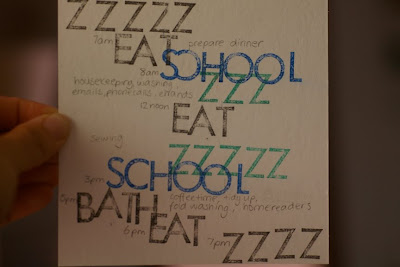 ZZZZZ
7am EAT prepare dinner
8am SCHOOL
housekeeping, washing, ZZZ
emails, phonecalls, errands
12 noon EAT
sewing ZZZZZ
3pm SCHOOL
BATH coffee time, tidy up,
fold washing, homereaders
6pm EAT
7pm ZZZZ